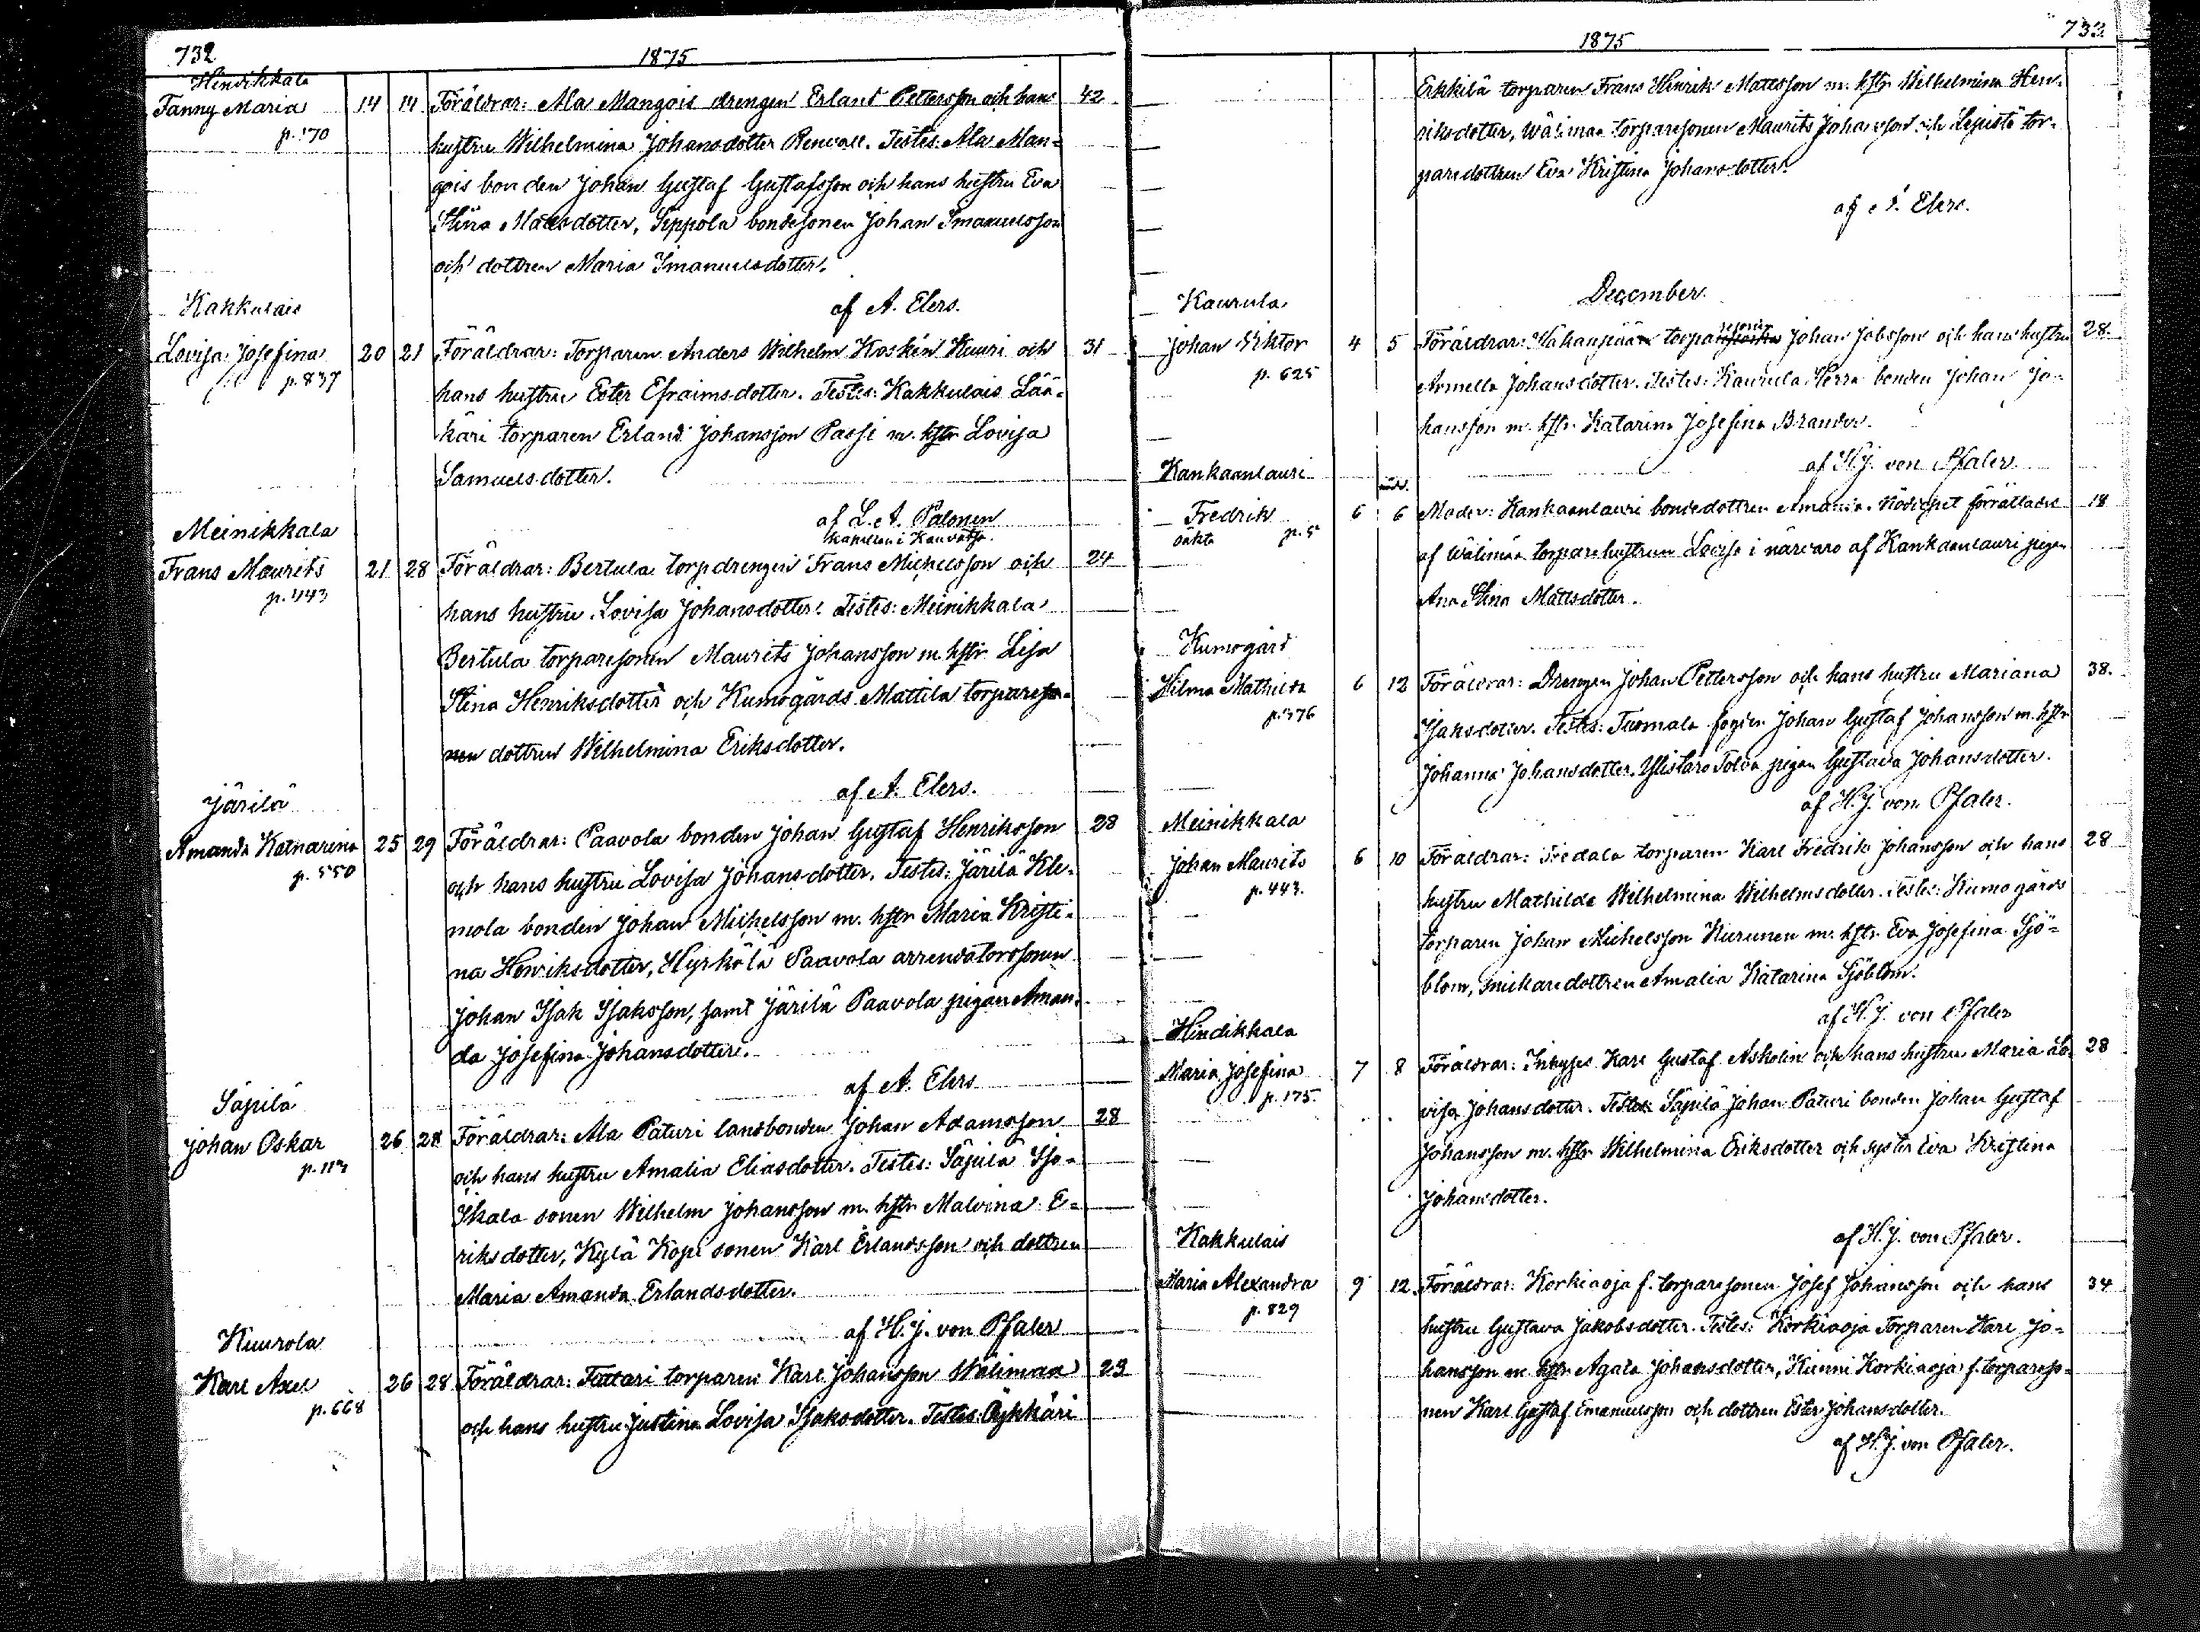 732
1875
Hindikkala
Fanny Maria 14 14 Föräldrar: Ala Mangois drengen Erland Pettersson och hans 42
p. 170
hustru Wilhelmina Johansdotter Renvall. Testes: Ala Man-
gois bonden Johan Gustaf Gustafsson och hans hustru Eva
Stina Matsdotter, Seppola bondesonen Johan Imanuelsson
och dottren Maria Imanuelsdotter.
af A. Elers.
Kakkulais
Lovisa Josefina 20 21 Föräldrar: Torparen Anders Wilhelm Koskén Kuuri och 31
p. 837
hans hustru Ester Efraimsdotter. Testes: Kakkulais Lää-
käri torparen Erland Johansson Passi m. hstr Lovisa
Samuelsdotter.
af L. A. Palonen
kapellan i Kauvatsa.
Meinikkala
Frans Maurits 21 28 Föräldrar: Bertula torpdrengen Frans Michelsson och 24
p. 443
hans hustru Lovisa Johansdotter. Testes: Meinikkala
Bertula torparesonen Maurits Johansson m. hstr Lisa
Stina Henriksdotter och Kumogårds Mattila torpareso-
nen dottren Wilhelmina Eriksdotter.
af A. Elers.
Järilä
Amanda Katharina 25 29 Föräldrar: Paavola bonden Johan Gustaf Henriksson 28
p. 550
och hans hustru Lovisa Johansdotter. Testes: Järilä Kle-
mola bonden Johan Michelsson m. hstr Maria Kristi-
na Henriksdotter, Hyrkölä Paavola arrendatorssonen
Johan Isak Isaksson, samt Järilä Paavola pigan Aman-
da Josefina Johansdotter.
af A. Elers
Säpilä
Johan Oskar 26 28 Föräldrar: Ala Paturi landbonden Johan Adamsson 28
och hans hustru Amalia Eliasdotter. Testes: Säpilä Iso-
Skala sonen Wilhelm Johansson m. hstr Malvina E-
riksdotter, Kylä Kopi sonen Karl Erlandsson och dottren
Maria Amanda Erlandsdotter.
af H. J. von Pfaler
Kuurola
Karl Axel 26 28 Föräldrar: Tattari torparen Karl Johansson Wälimaa 23
p. 668
och hans hustru Justina Lovisa Isaksdotter. Testes: Pykkäri
1875
733
Erkkilä torparen Frans Henrik Mattsson m. hstr Wilhelmina Hen-
riksdotter, Wälimaa torparesonen Maurits Johansson och Lepistö tor-
paredottren Eva Kristina Johansdotter.
af A. Elers.
December.
Kaurula
Johan Viktor 4 5 Föräldrar: Vähänpään torparesonen Johan Jobsson och hans hustru 28.
p. 625
Armella Johansdotter. Testes: Kaurula Herra bonden Johan Jo-
hansson m. hstr. Katarina Josefina Brander.
af H. J. von Pfaler
Kankaanlauri
nöd.
Fredrik 6 6 Moder: Kankaanlauri bondedottren Amanda. Nöddopet förrättades 18
oäkta p. 5
af Wälimäa torparehustrun Lovisa i närvaro af Kankaanlauri pigan
Ana Stina Mattsdotter.
Kumogård
Hilma Mathilda 6 12 Föräldrar: Drengen Johan Pettersson och hans hustru Mariana 38.
p. 376
Isaksdotter. Testes: Tuomala fogden Johan Gustaf Johansson m. hstr
Johanna Johansdotter. Ylistaro Tolva pigan Gustava Johansdotter.
af H. J. von Pfaler.
Meinikkala
Johan Maurits 6 10 Föräldrar: Fredala torparen Karl Fredrik Johansson och hans 28
p. 443.
hustru Mathilda Wilhelmina Wilhelmsdotter. Testes: Kumogårds
torparen Johan Michelsson Kurunen m. hstr. Eva Josefina Sjö-
blom, snickaredottren Amalia Katarina Sjöblom.
af H. J. von Pfaler
Hindikkala
Maria Josefina 7 8 Föräldrar: Inhyses Karl Gustaf Askolin och hans hustru Maria Lo- 28
p. 175
visa Johansdotter. Testes: Säpilä Johan Paturi bonden Johan Gustaf
Johansson m. hstr Wilhelmina Eriksdotter och syster Eva Kristina
Johansdotter.
af H. J. von Pfaler.
Kakkulais
Maria Alexandra 9 12 Föräldrar: Korkiaoja f. torparesonen Josef Johansson och hans 34
p. 829
hustru Gustava Jakobsdotter. Testes: Korkiaoja Torparen Karl Jo-
hansson m. hstr Agata Johansdotter, Kinni Korkiaoja f. torpareso-
nen Karl Gustaf Emanuelsson och dottren Ester Johansdotter.
af H. J. von Pfaler.